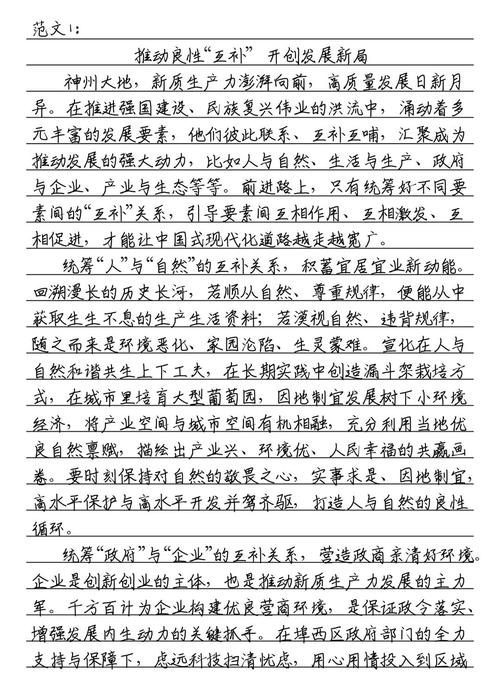 范文1:
推动良性“互补” 开创发展新局
神州大地，新质生产力澎湃向前，高质量发展日新月
异。在推进强国建设、民族复兴伟业的洪流中，涌动着多
元丰富的发展要素，他们彼此联系、互补互哺，汇聚成为
推动发展的强大动力，比如人与自然、生活与生产、政府
与企业、产业与生态等等。前进路上，只有统筹好不同要
素间的“互补”关系，引导要素间互相作用、互相激发、互
相促进，才能让中国式现代化道路越走越宽广。
统筹“人”与“自然”的互补关系，积蓄宜居宜业新动能。
回溯漫长的历史长河，若顺从自然、尊重规律，便能从中
获取生生不息的生产生活资料；若漠视自然、违背规律，
随之而来是环境恶化、家园沦陷、生灵蒙难。宣化在人与
自然和谐共生上下工夫，在长期实践中创造漏斗架栽培方
式，在城市里培育大型葡萄园，因地制宜发展树下小环境
经济，将产业空间与城市空间有机相融，充分利用当地优
良自然禀赋，描绘出产业兴、环境优、人民幸福的共赢画
卷。要时刻保持对自然的敬畏之心，实事求是、因地制宜，
高水平保护与高水平开发并驾齐驱，打造人与自然的良性
循环。
统筹“政府”与“企业”的互补关系，营造政商亲清好环境。
企业是创新创业的主体，也是推动新质生产力发展的主力
军。千方百计为企业构建优良营商环境，是保证政令落实、
增强发展内生动力的关键抓手。在埠西区政府部门的全力
支持与保障下，虑远科技扫清忧虑，用心用情投入到区域